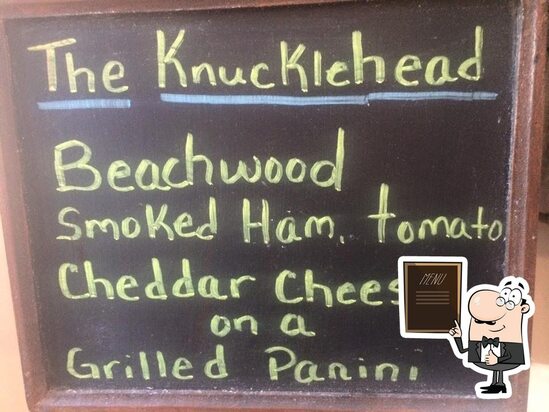 The Knucklehead
Beachwood
Smoked Ham, tomato,
Cheddar Chees
on a
Grilled Panini
MENU